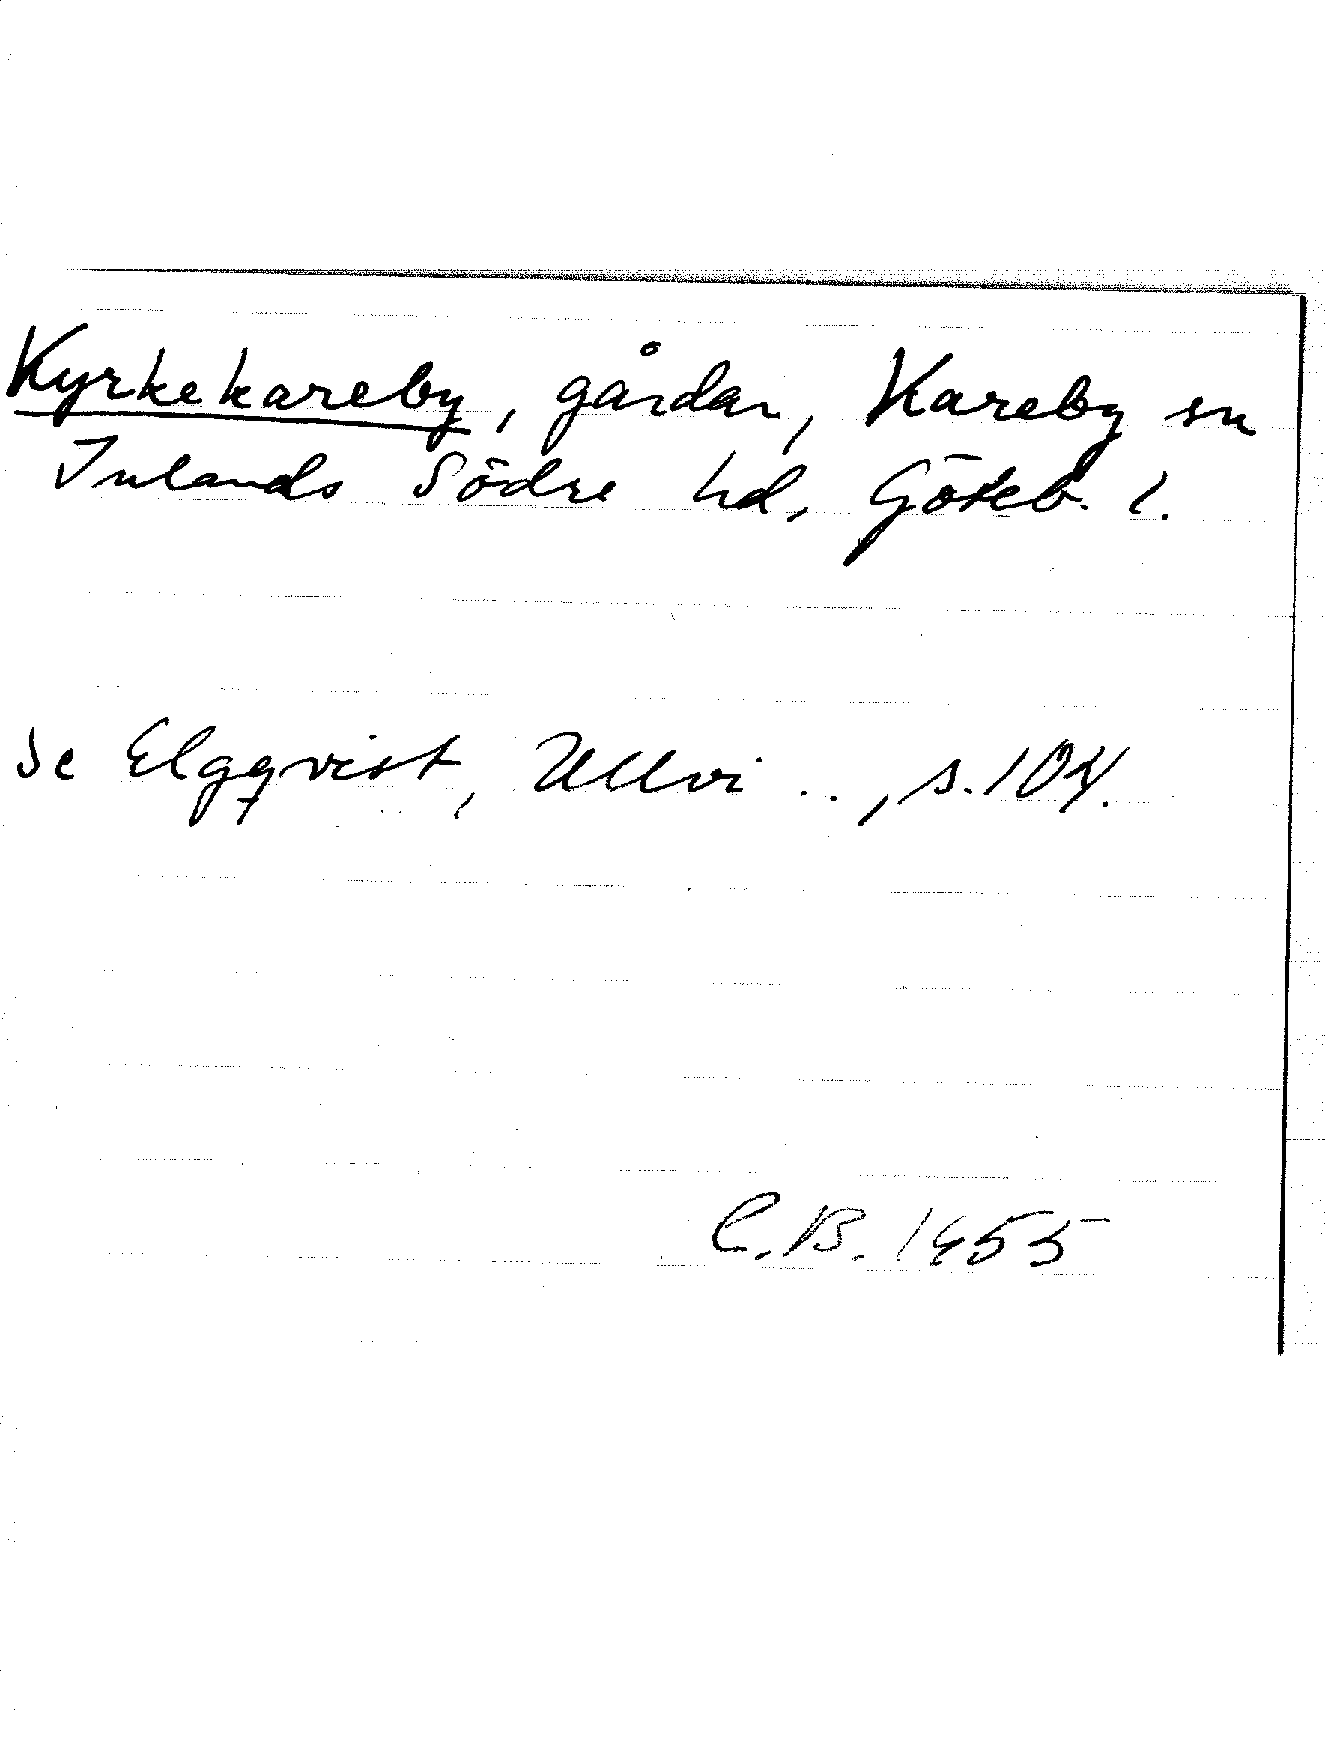 Kyrkekareby, gårdar, Kareby sn
Inlands Södre hd, Göteb. l.
Se Elgqvist, Ullvi . . , s. 104.
C.B. 1955